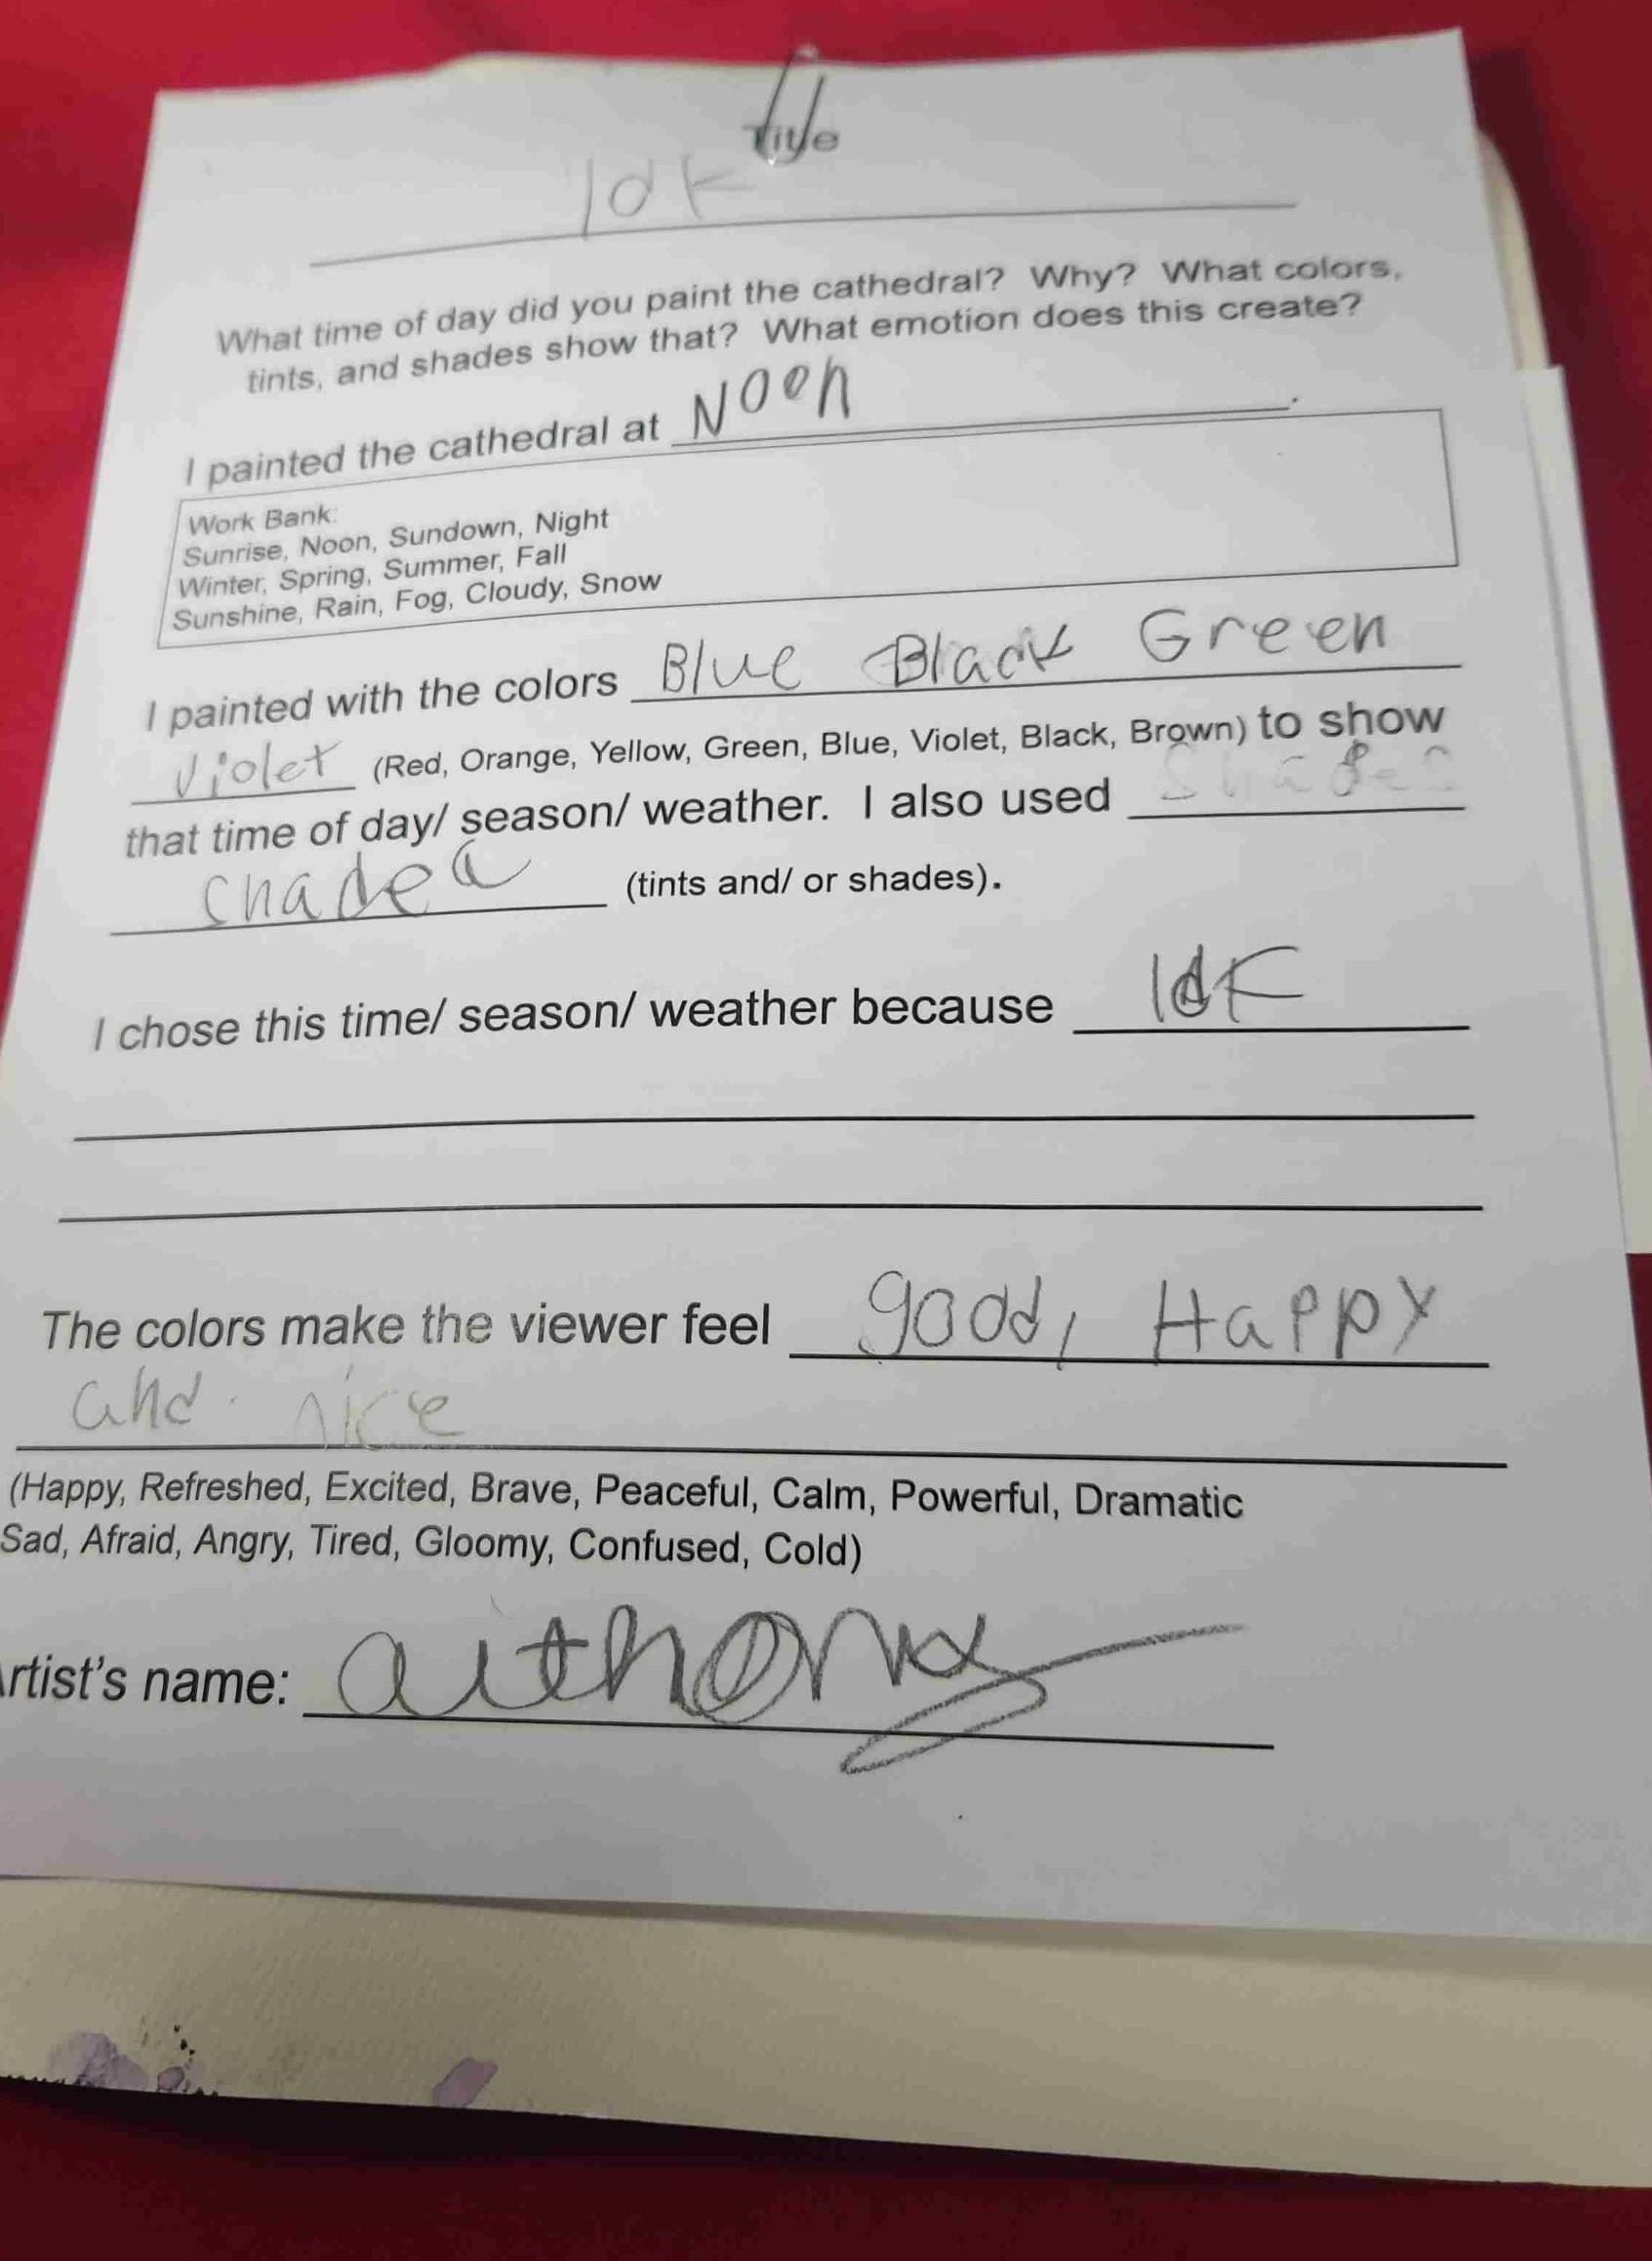 Title
Idk
What time of day did you paint the cathedral? Why? What colors,
tints, and shades show that? What emotion does this create?
I painted the cathedral at Noon.
Work Bank:
Sunrise, Noon, Sundown, Night
Winter, Spring, Summer, Fall
Sunshine, Rain, Fog, Cloudy, Snow
I painted with the colors Blue Black Green
Violet (Red, Orange, Yellow, Green, Blue, Violet, Black, Brown) to show
that time of day/ season/ weather. I also used shades
(tints and/ or shades).
I chose this time/ season/ weather because Idk
The colors make the viewer feel good, Happy
and nice
(Happy, Refreshed, Excited, Brave, Peaceful, Calm, Powerful, Dramatic
Sad, Afraid, Angry, Tired, Gloomy, Confused, Cold)
Artist's name: